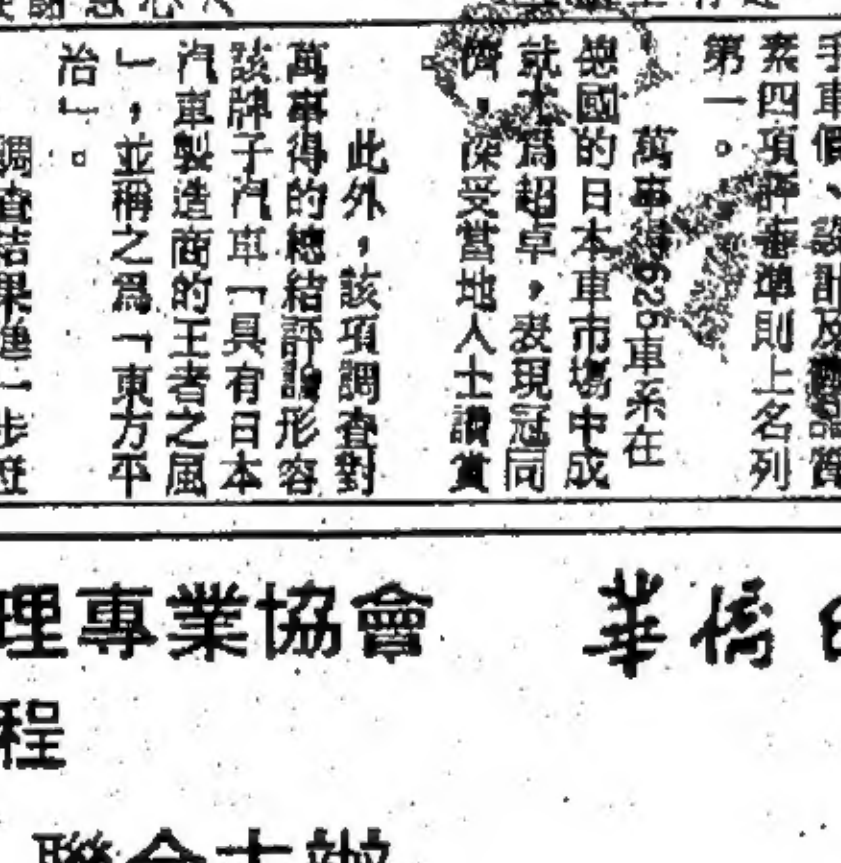 手車價、設計及
素四項評審準則上名列
第一。
萬事得626車系在
德國的日本車市場中成
就尤為超卓，表現冠同
儕，深受當地人士讚賞
此外，該項調查對
萬事得的總結評論形容
該牌子汽車「具有日本
汽車製造商的王者之風
」，並稱之爲「東方平
治」。
調查結果進一步
理專業協會
華僑
程
聯合主辦